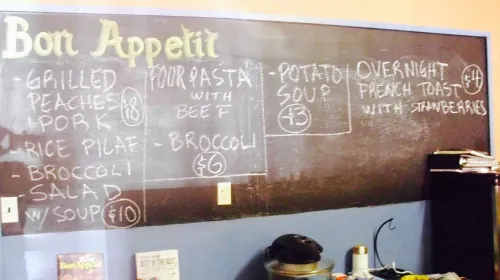 Bon Appetit
- GRILLED
PEACHES
+ PORK $8
- RICE PILAF
- BROCCOLI
- SALAD
W/ SOUP $10
FOUR PASTA
WITH
BEEF
- BROCCOLI
$6
- POTATO
SOUP
$3
OVERNIGHT
FRENCH TOAST
WITH STRAWBERRIES
$4
Bon Appetit
BEST OF THE BEST